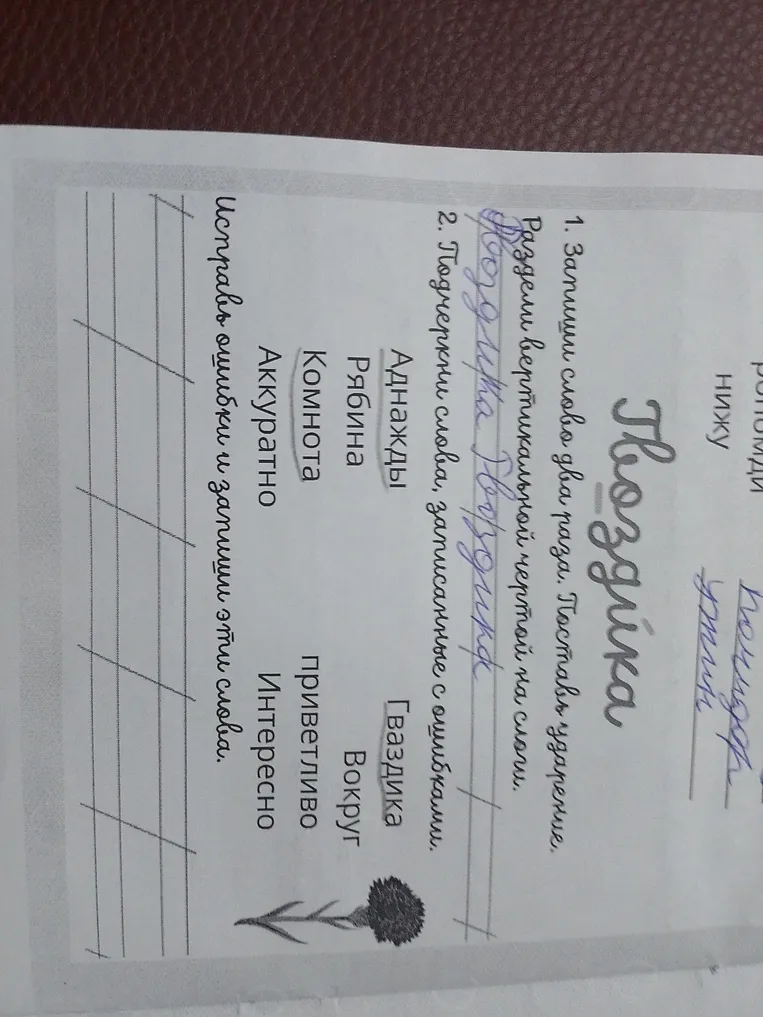 нижу
ужин
Гвоздика
1. Запиши слово два раза. Поставь ударение.
Раздели вертикальной чертой на слоги.
Гвоздика Гвоздика
2. Подчеркни слова, записанные с ошибками.
Аднажды Гваздика
Рябина Вокруг
Комнота приветливо
Аккуратно Интересно
Исправь ошибки и запиши эти слова.